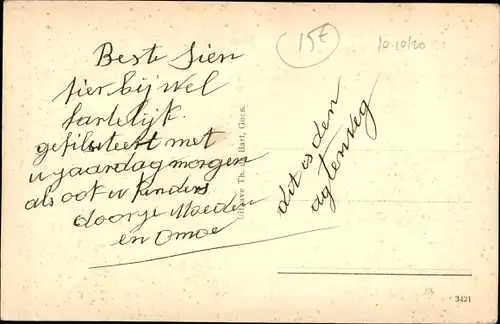 Beste Sien
hier bij wel
hartelijk
gefiliteert met
u vjaardag morgen
als ook u kinders
door je Moeder
en Omoe
dit is den
agtenweg
Uitgave Th. de Bart, Goes.
15E
10.10/20
3421